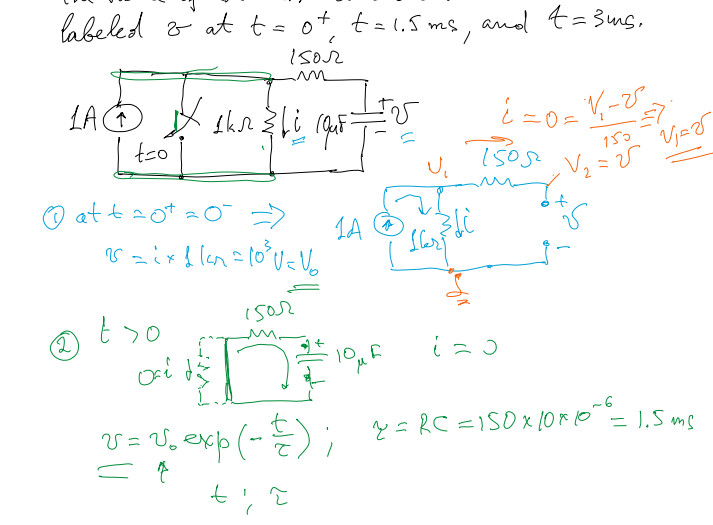 labeled v at t = 0⁺, t = 1.5 ms, and t = 3 ms.
150Ω
1A
t=0
1kΩ
i
10μF
+
v
−
i = 0 = (V₁ − v)/150 ⇒ V₁ = v
V₁
150Ω
V₂ = v
① at t = 0⁺ = 0⁻ ⇒
1A
1kΩ
i
+
v
−
v = i × 1kΩ = 10³ V = V₀
② t > 0
150Ω
0=i
+
−
10μF
i = 0
v = v₀ exp(−t/τ);
τ = RC = 150 × 10 × 10⁻⁶ = 1.5 ms
t ; τ